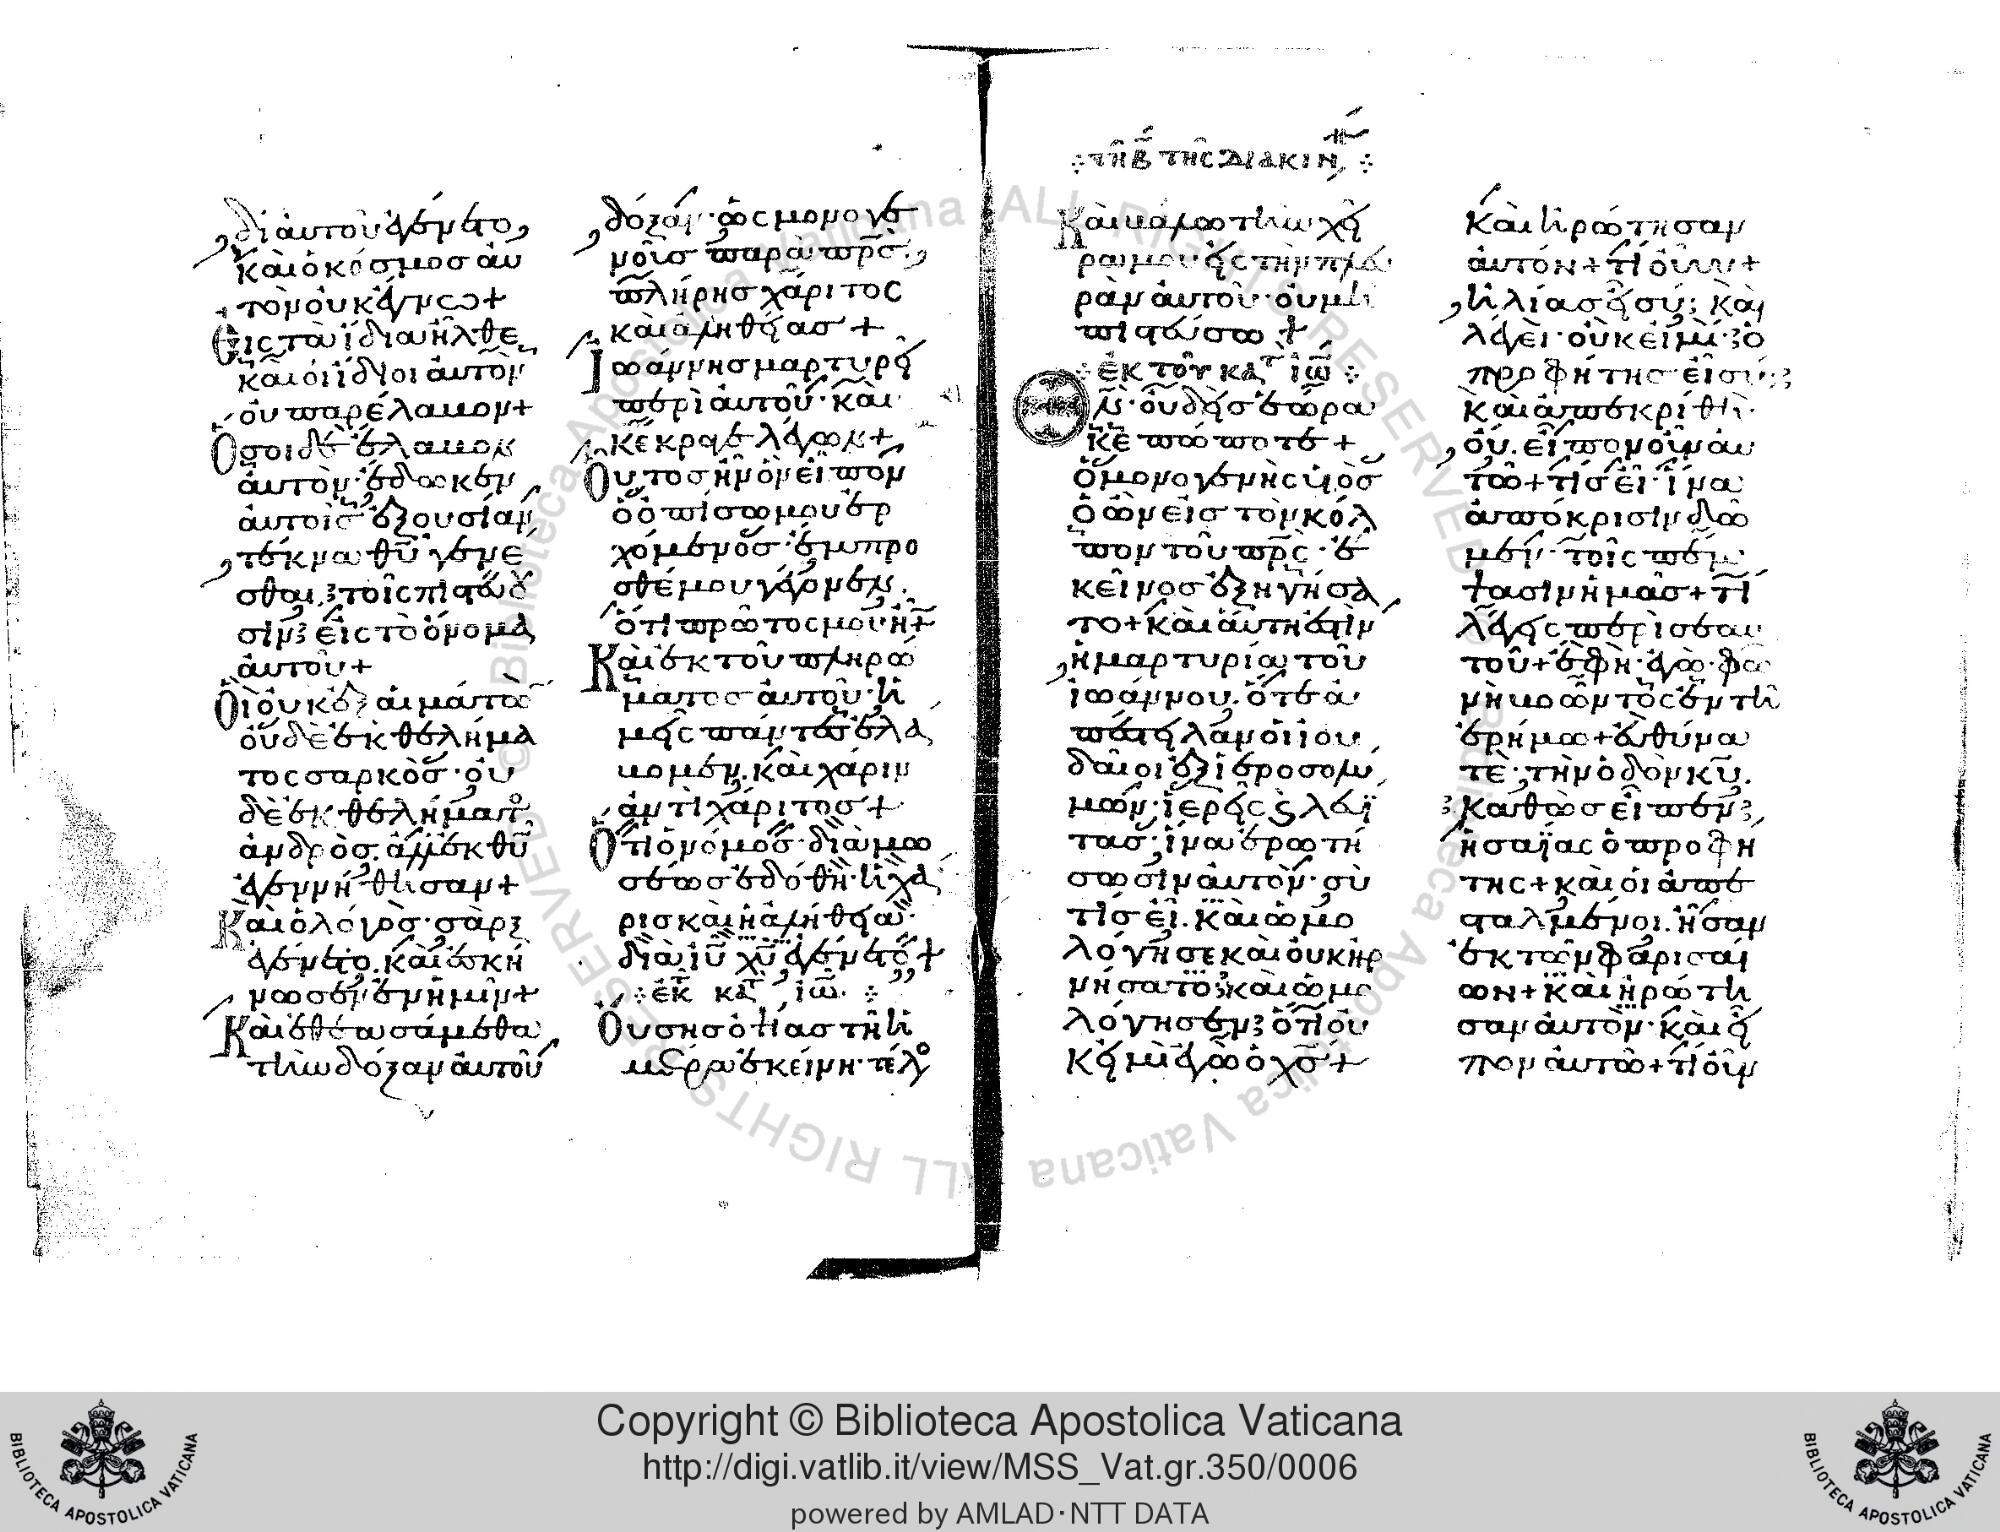 δι αὐτοῦ ἐγένετο,
καὶ ὁ κόσμος αὐ
τὸν οὐκ ἔγνω+
Εἰς τὰ ἴδια ἦλθε
καὶ οἱ ἴδιοι αὐτὸν
οὐ παρέλαβον+
Ὅσοι δὲ ἔλαβον
αὐτὸν· ἔδωκεν
αὐτοῖς ἐξουσίαν
τέκνα θῦ γενέ
σθαι, τοῖς πιστεύου
σιν εἰς τὸ ὄνομα
αὐτοῦ+
Οἳ οὐκ ἐξ αἱμάτων
οὐδὲ ἐκ θελήμα
τος σαρκὸς· οὐ
δὲ ἐκ θελήματο
ἀνδρὸς. ἀλλ' ἐκ θῦ
ἐγεννήθησαν+
Καὶ ὁ λόγος· σὰρξ
ἐγένετο. καὶ ἐσκή
νωσεν ἐν ἡμῖν+
Καὶ ἐθεασάμεθα
τὴν δόξαν αὐτοῦ
δόξαν· ὡς μονογε
νοῦς παρὰ πρς.
πλήρης χάριτος
καὶ ἀληθείας+
Ἰωάννης μαρτυρεῖ
περὶ αὐτοῦ· καὶ
κέκραγε λέγων+
Οὗτος ἦν ὃν εἶπον
ὁ ὀπίσω μου ἐρ
χόμενος· ἔμπρο
σθέν μου γέγονεν.
ὅτι πρῶτός μου ἦν+
Καὶ ἐκ τοῦ πληρώ
ματος αὐτοῦ· ἡ
μεῖς πάντες ἐλά
βομεν. καὶ χάριν
ἀντὶ χάριτος+
Ὅτι ὁ νόμος· διὰ μω
σέως ἐδόθη· ἡ χά
ρις καὶ ἡ ἀλήθεια·
διὰ ιῦ χῦ ἐγένετο+
ἐκ κατ ἰω
Οὔσης ὀψίας τῇ ἡ
μέρᾳ ἐκείνῃ· τέλο
τῇ β τῆς διακιν
Καὶ βάλω τὴν χεῖ
ρα μου εἰς τὴν πλευ
ρὰν αὐτοῦ· οὐ μὴ
πιστεύσω+
ἐκ τοῦ κατ ἰω
θν· οὐδεὶς ἑώρα
κε πώποτε+
ὁ μονογενὴς υἱὸς
ὁ ὢν εἰς τὸν κόλ
πον τοῦ πρς· ἐ
κεῖνος ἐξηγήσα
το+ καὶ αὕτη ἐστὶν
ἡ μαρτυρία τοῦ
ἰωάννου. ὅτε ἀ
πέστειλαν οἱ ἰου
δαῖοι ἐξ ἱεροσολύ
μων· ἱερεῖς καὶ λευΐ
τας· ἵνα ἐρωτή
σωσιν αὐτὸν· σὺ
τίς εἶ. καὶ ὡμο
λόγησε καὶ οὐκ ἠρ
νήσατο· καὶ ὡμο
λόγησεν ὅτι οὐ
κ εἰμὶ ἐγὼ ὁ χς+
καὶ ἠρώτησαν
αὐτόν+ τί οὖν+
ἠλίας εἶ σύ; καὶ
λέγει· οὐκ εἰμί· ὁ
προφήτης εἶ σύ;
καὶ ἀπεκρίθη·
οὔ. εἶπον οὖν αὐ
τῷ+ τίς εἶ· ἵνα
ἀπόκρισιν δῶ
μεν· τοῖς πέμ
ψασιν ἡμᾶς+ τί
λέγεις περὶ σεαυ
τοῦ+ ἔφη· ἐγὼ· φω
νὴ βοῶντος ἐν τῇ
ἐρήμῳ+ εὐθύνα
τε· τὴν ὁδὸν κῦ.
καθὼς εἶπεν
ἡσαΐας ὁ προφή
της+ καὶ οἱ ἀπε
σταλμένοι. ἦσαν
ἐκ τῶν φαρισαί
ων+ καὶ ἠρώτη
σαν αὐτὸν· καὶ εἶ
πον αὐτῷ+ τί οὖν
Copyright © Biblioteca Apostolica Vaticana
http://digi.vatlib.it/view/MSS_Vat.gr.350/0006
powered by AMLAD·NTT DATA
BIBLIOTECA APOSTOLICA VATICANA
BIBLIOTECA APOSTOLICA VATICANA